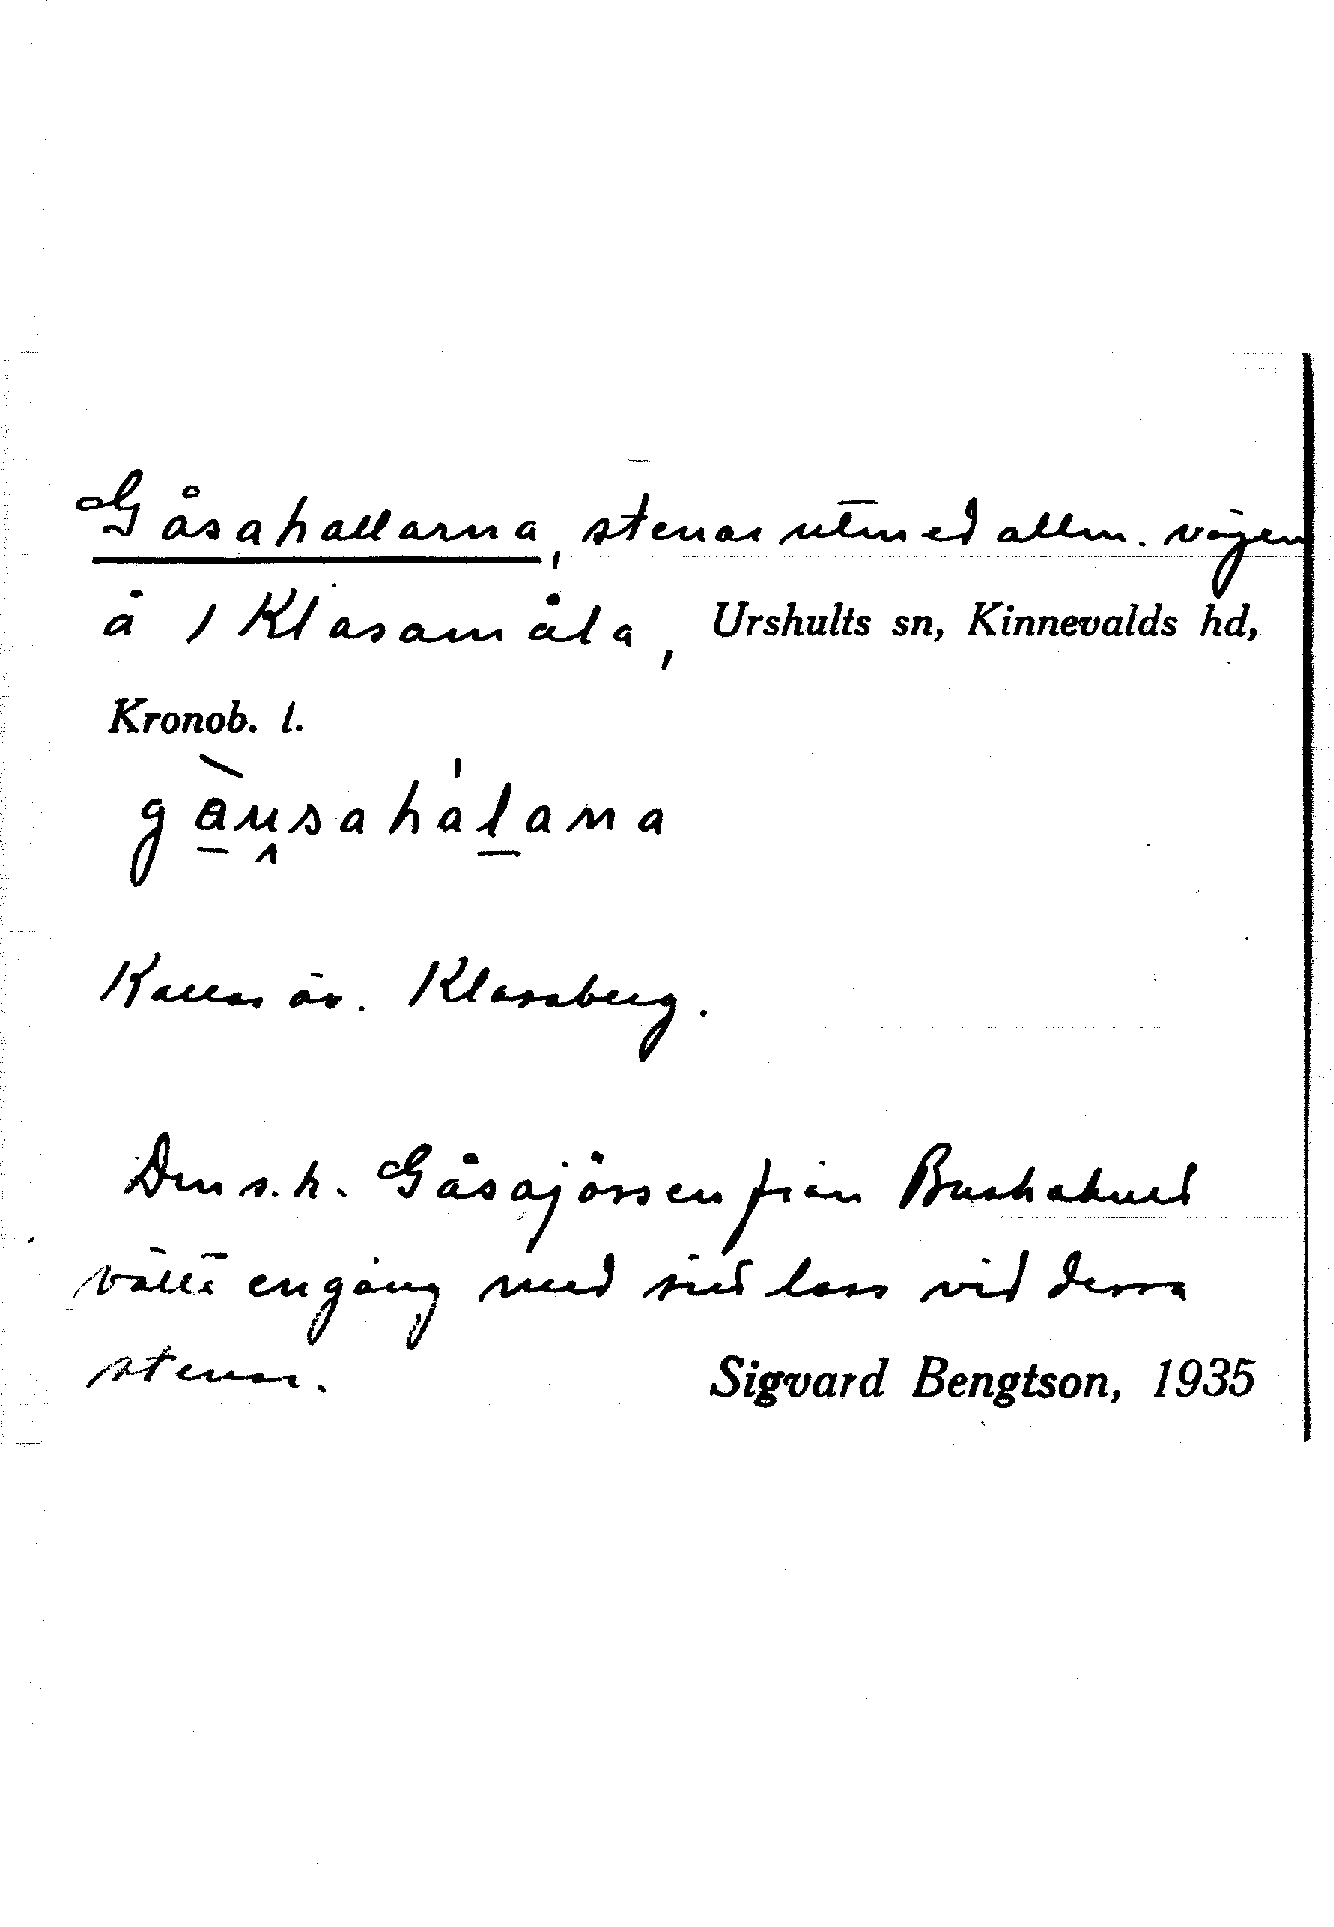 Gåsahallarna, stenar utmed allm. vägen
å 1 Klasamåla, Urshults sn, Kinnevalds hd,
Kronob. l.
gàu̯sahálana
Kallas äv. Klasaberg.
Den s.k. Gåsajössen från Buskahult
välte en gång med sitt lass vid dessa
stenar. Sigvard Bengtson, 1935